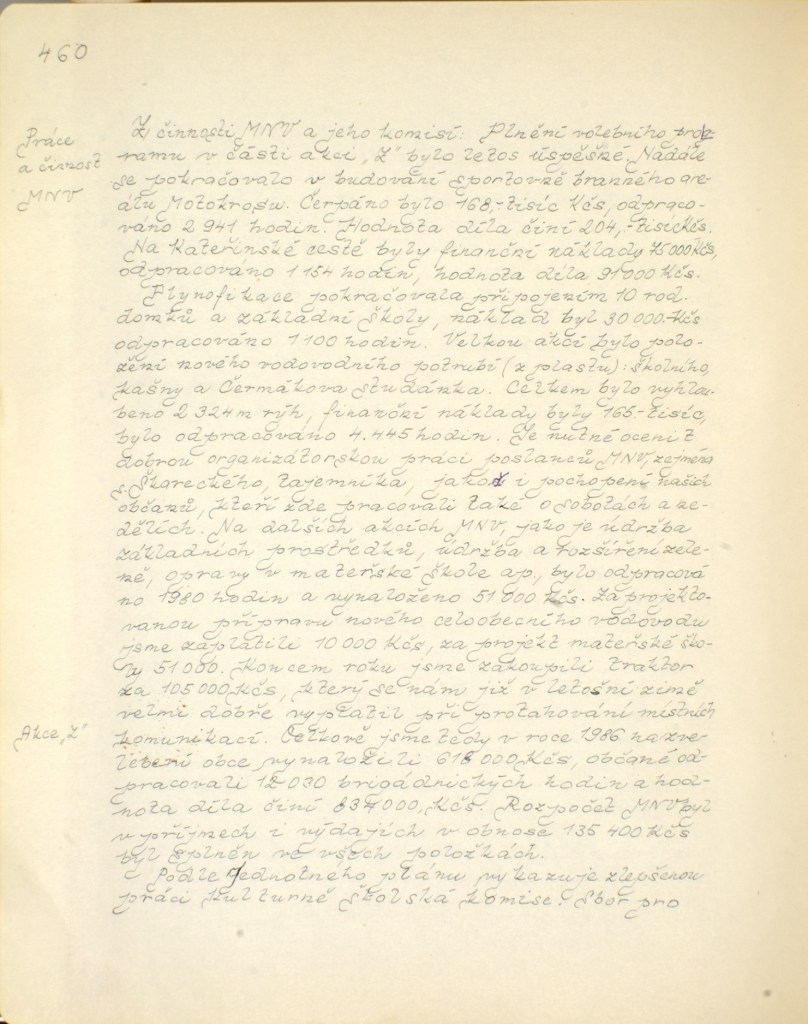 460
Práce
a činnost
MNV
Z činnosti MNV a jeho komisí: Plnění volebního prog-
ramu v části akcí „Z" bylo letos úspěšné. Nadále
se pokračovalo v budování sportovně branného are-
álu Motokrosu. Čerpáno bylo 168,-tisíc Kčs, odpraco-
váno 2 941 hodin. Hodnota díla činí 204,-tisíc Kčs.
Na Kateřinské cestě byly finanční náklady 75 000 Kčs,
odpracováno 1 154 hodin, hodnota díla 91 000 Kčs.
Plynofikace pokračovala připojením 10 rod.
domků a základní školy, náklad byl 30 000.-Kčs
odpracováno 1 100 hodin. Velkou akcí bylo polo-
žení nového vodovodního potrubí (z plastu): školního,
kašny a Čermákova studánka. Celkem bylo vyhlou-
beno 2 324 m rýh, finanční náklady byly 165.-tisíc,
bylo odpracováno 4.445 hodin. Je nutné ocenit
dobrou organizátorskou práci poslanců MNV, zejména
s. Škareckého, tajemníka, jakož i pochopení našich
občanů, kteří zde pracovali také o sobotách a ne-
dělích. Na dalších akcích MNV, jako je údržba
základních prostředků, údržba a rozšíření zele-
ně, opravy v mateřské škole ap., bylo odpracová
no 1980 hodin a vynaloženo 51 000 Kčs. Za projekto-
vanou přípravu nového celoobecního vodovodu
jsme zaplatili 10 000 Kčs, za projekt mateřské ško-
ly 51 000. Koncem roku jsme zakoupili traktor
za 105 000 Kčs, který se nám již v letošní zimě
velmi dobře vyplatil při protahování místních
Akce „Z"
komunikací. Celkově jsme tedy v roce 1986 na zve-
lebení obce vynaložili 618 000 Kčs, občané od-
pracovali 12 030 brigádnických hodin a hod-
nota díla činí 834 000,Kčs. Rozpočet MNV byl
v příjmech i výdajích v obnose 135 400 Kčs
byl splněn ve všech položkách.
Podle Jednotného plánu vykazuje zlepšenou
práci kulturně školská komise. Sbor pro